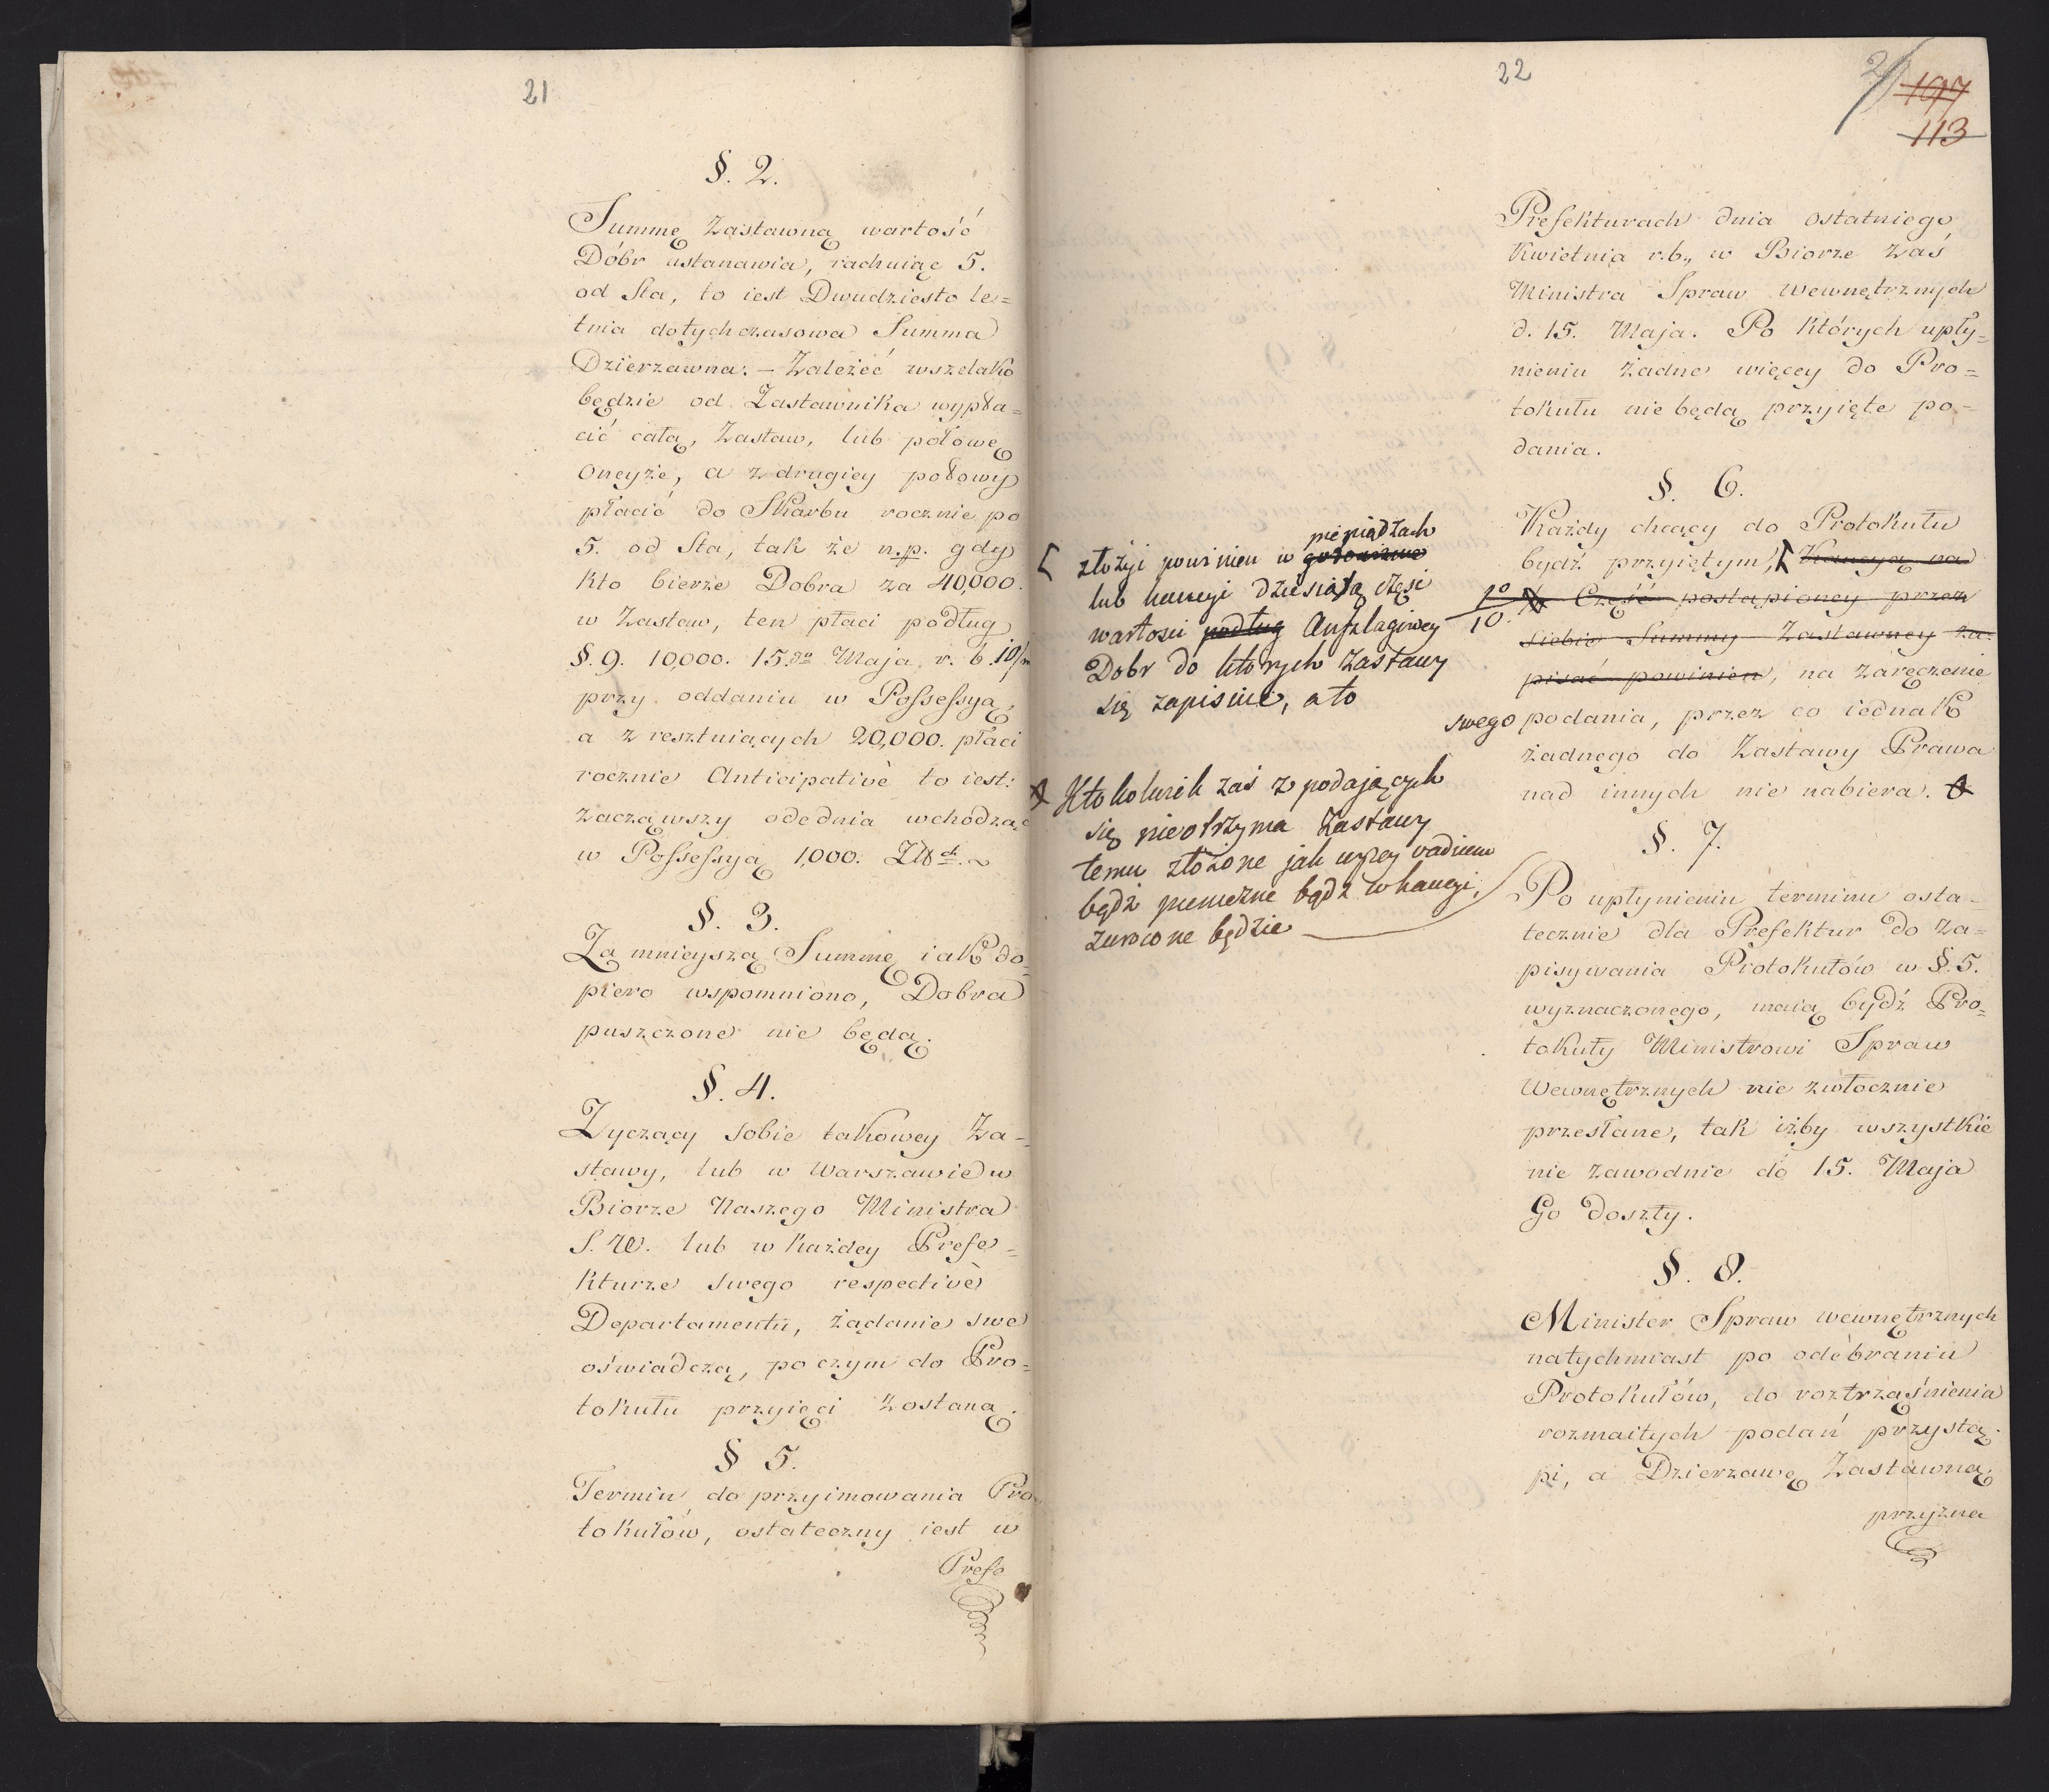 21
§. 2.
Summę Zastawną wartość
Dóbr ustanawia, rachuiąc 5.
od Sta, to iest Dwudziesto le=
tnia dotychczasowa Summa
Dzierzawna. – Zależéć wszelako
będzie od Zastawnika wypła=
cić całą, Zastaw, lub połowę
oneyże, a z drugiey połowy
płacić do Skarbu rocznie po
5. od Sta, tak że n.p. gdy
kto bierze Dobra za 40,000.
w Zastaw, ten płaci podług
§. 9. 10,000. 15.go Maja r. b. 10/m
przy oddaniu w Possessyą,
a z resztuiących 20,000. płaci
rocznie Anticipativè to iest:
zacząwszy odednia wchodzą
w Possessyą 1,000. Zł.
§. 3.
Za mnieyszą Summę iak do=
piero wspomniono, Dobra
puszczone nie będą.
§. 4.
Zyczący sobie takowey Za=
stawy, lub w Warszawie w
Biorze Naszego Ministra
S. W. lub w każdey Prefe=
kturze swego respectivè
Departamentu, żądanie swe
oświadczą, po czym do Pro=
tokułu przyięci zostaną.
§ 5.
Termin do przyimowania Pro
tokułów, ostateczny iest w
Prefe
22
2
197
113
Prefekturach dnia ostatniego
Kwietnia r.b., w Biorze zaś
Ministra Spraw Wewnętrznych
d. 15. Maja. Po których upły=
nieniu żadne więcey do Pro=
tokułu nie będą przyięte po=
dania.
§. 6.
Każdy chcący do Protokułu
bydź przyiętym, Kaucyą na
10/10 Część postąpioney przez
siebie Summy Zastawney za=
pisać powinien, na zaręczenie
swego podania, przez co iednak
żadnego do Zastawy Prawa
nad innych nie nabiera.
pieniądzach
złożyi powinien w gotowiznie
lub kaucyi dziesiątą część
wartości podług Anszlagowey
Dobr do których Zastawy
się zapisuie, a to
Ktokolwiek zaś z podających
się nieotrzyma Zastawy
temu złożone jak wyżey vadium
bądź pieniężne bądź w kaucyi,
zwrocone będzie
§. 7.
Po upłynieniu terminu osta=
tecznie dla Prefektur do za=
pisywania Protokułów w §. 5.
wyznaczonego, maią bydź Pro=
tokuły Ministrowi Spraw
Wewnętrznych nie zwłocznie
przesłane, tak iżby wszystkie
nie zawodnie do 15. Maja
Go doszły.
§. 8.
Minister Spraw wewnętrznych
natychmiast po odebraniu
Protokułów, do roztrząśnienia
rozmaitych podań przystą=
pi, a Dzierzawę Zastawną
przyzna